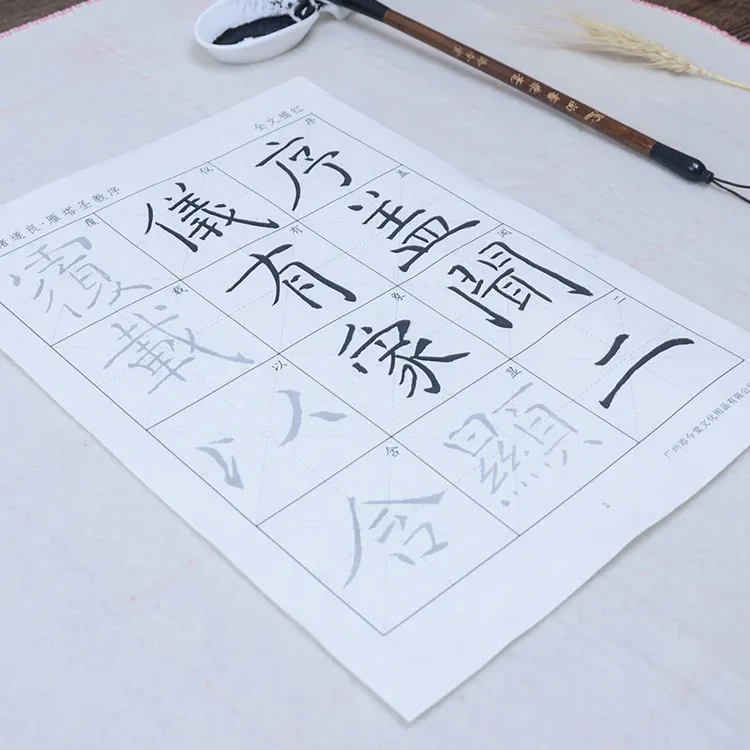 褚遂良·雁塔圣教序
全文描红
序 序
盖 盖
闻 聞
二 二
仪 儀
有 有
象 象
显 顯
覆 覆
载 載
以 以
含 含
文化用品有限公
2